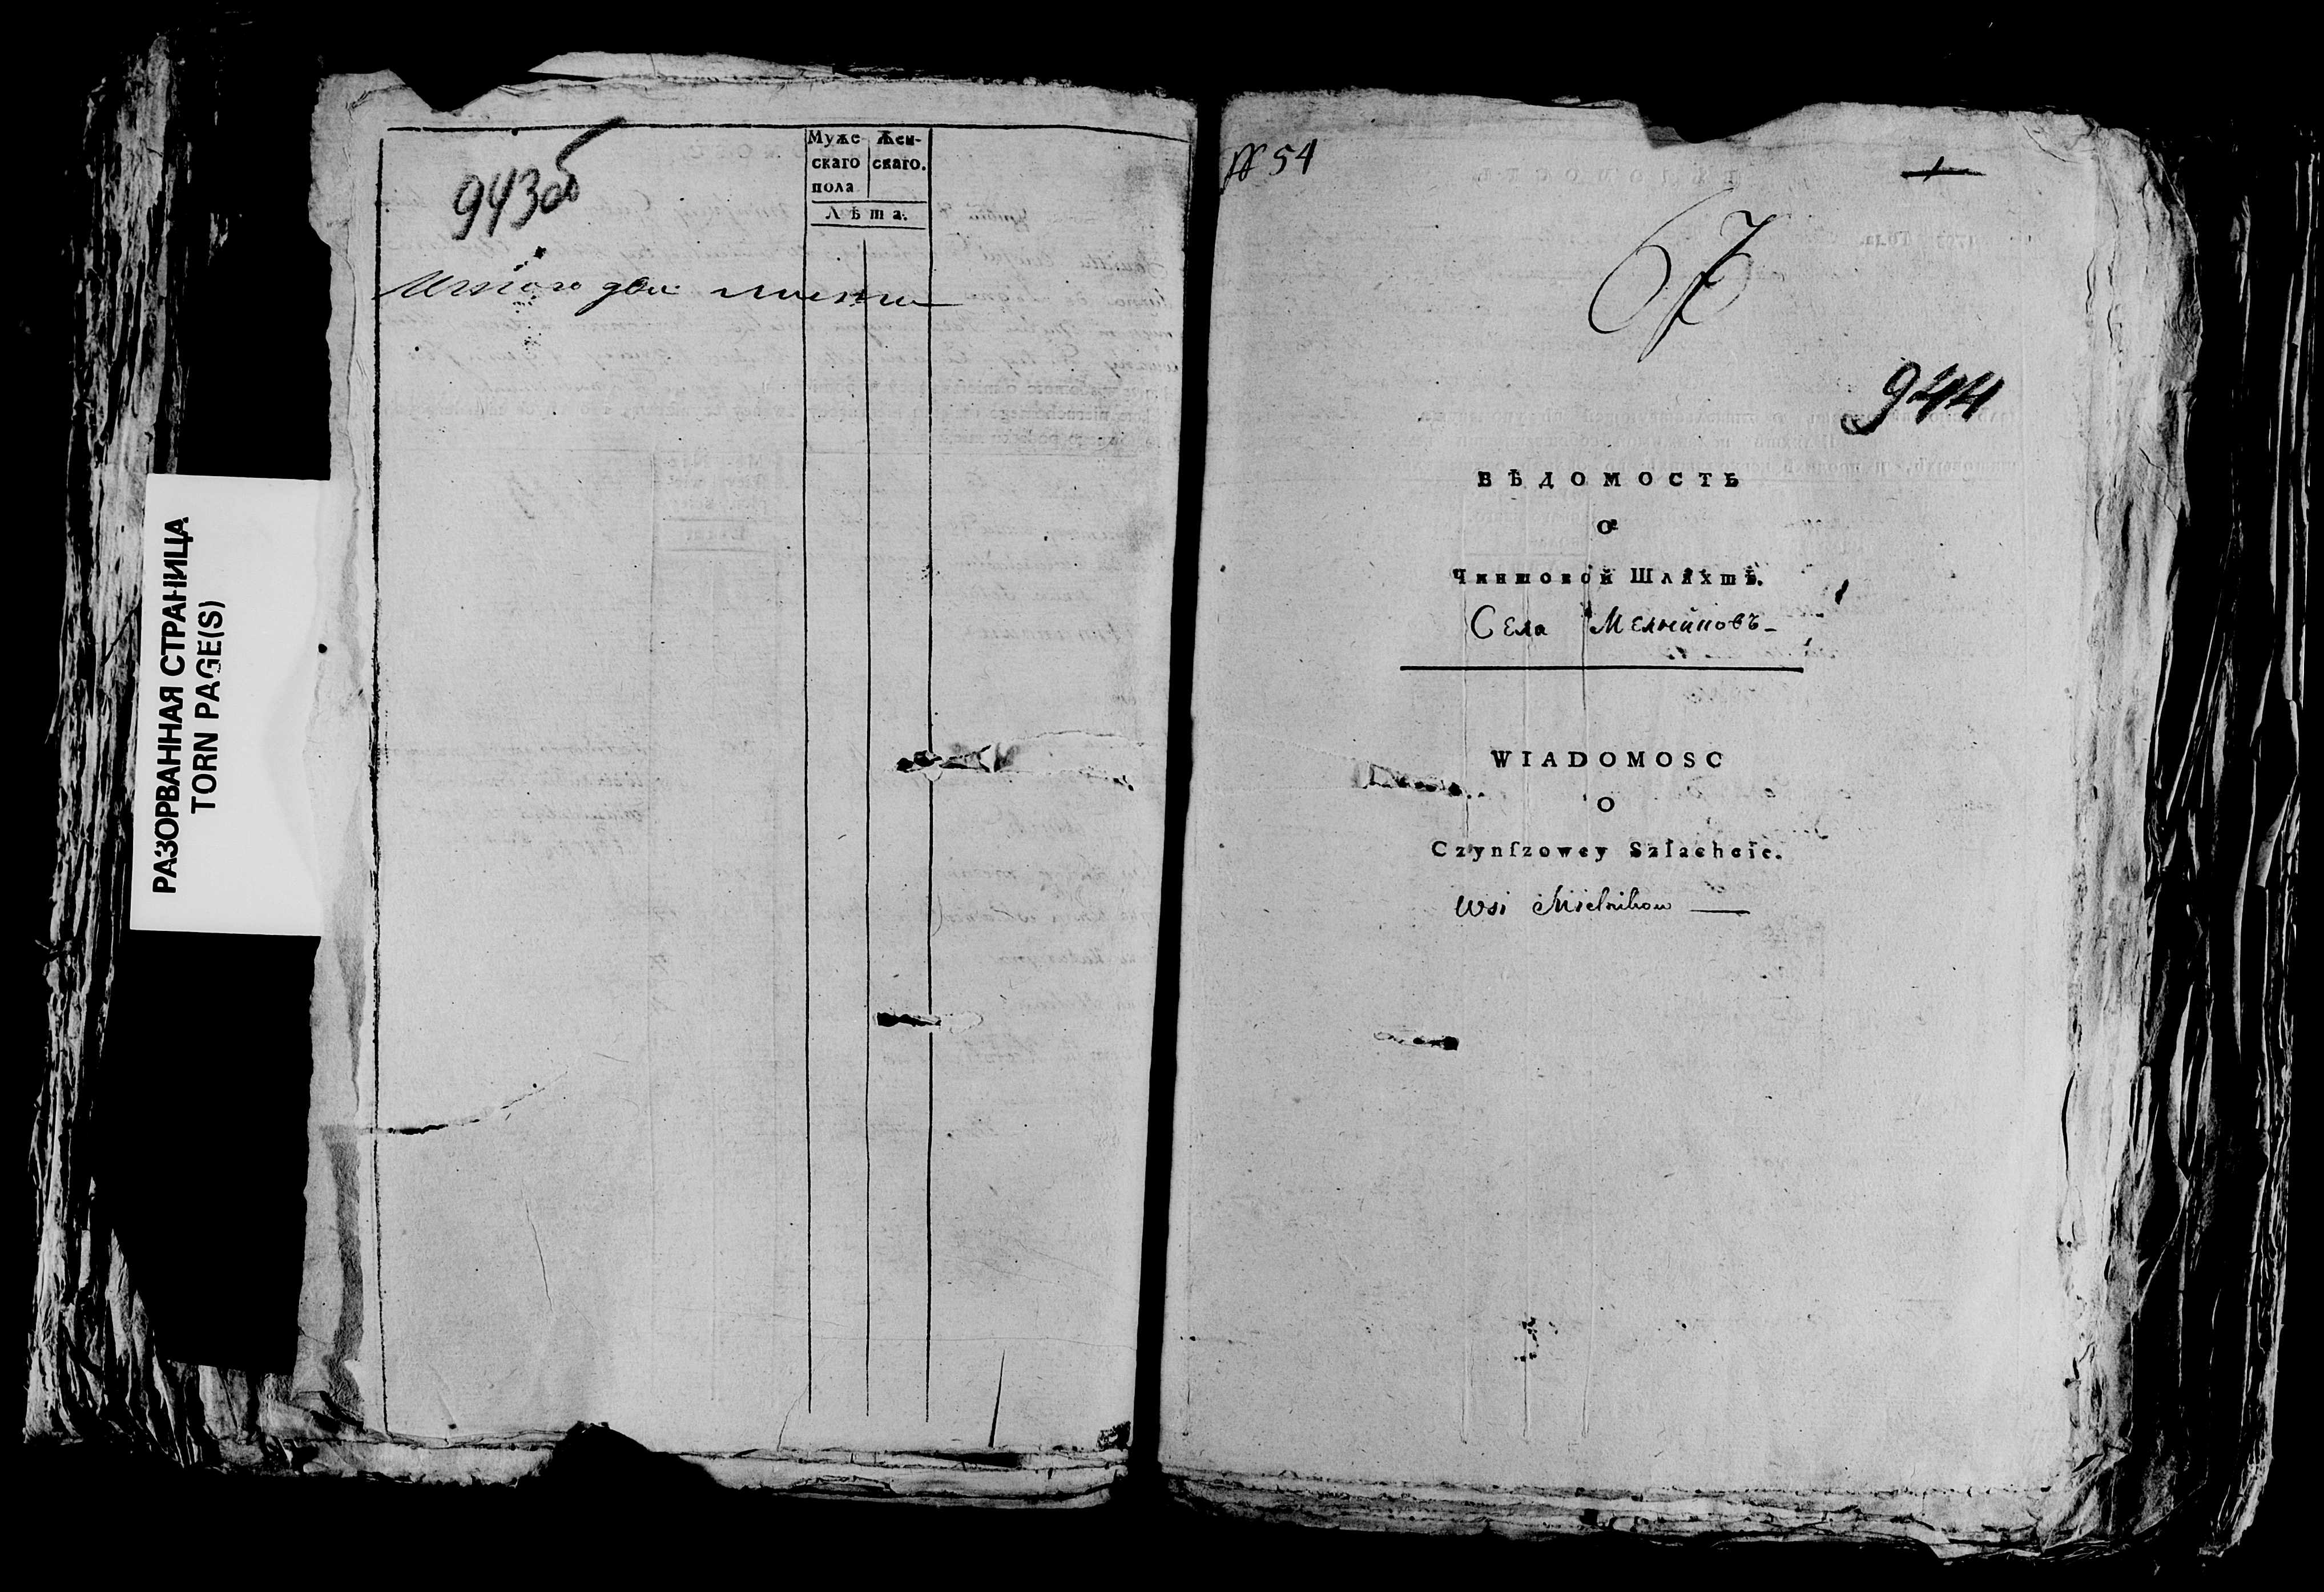 РАЗОРВАННАЯ СТРАНИЦА
TORN PAGE(S)
943об
Муже- Жен-
скаго скаго.
пола
Лѣта.
Итого два листа
№ 54
1
67
944
ВѢДОМОСТЬ
О
Чиншовой Шляхтѣ.
Села
WIADOMOSC
O
Czynſzowey Szlachcie.
Wsi Mielnikow